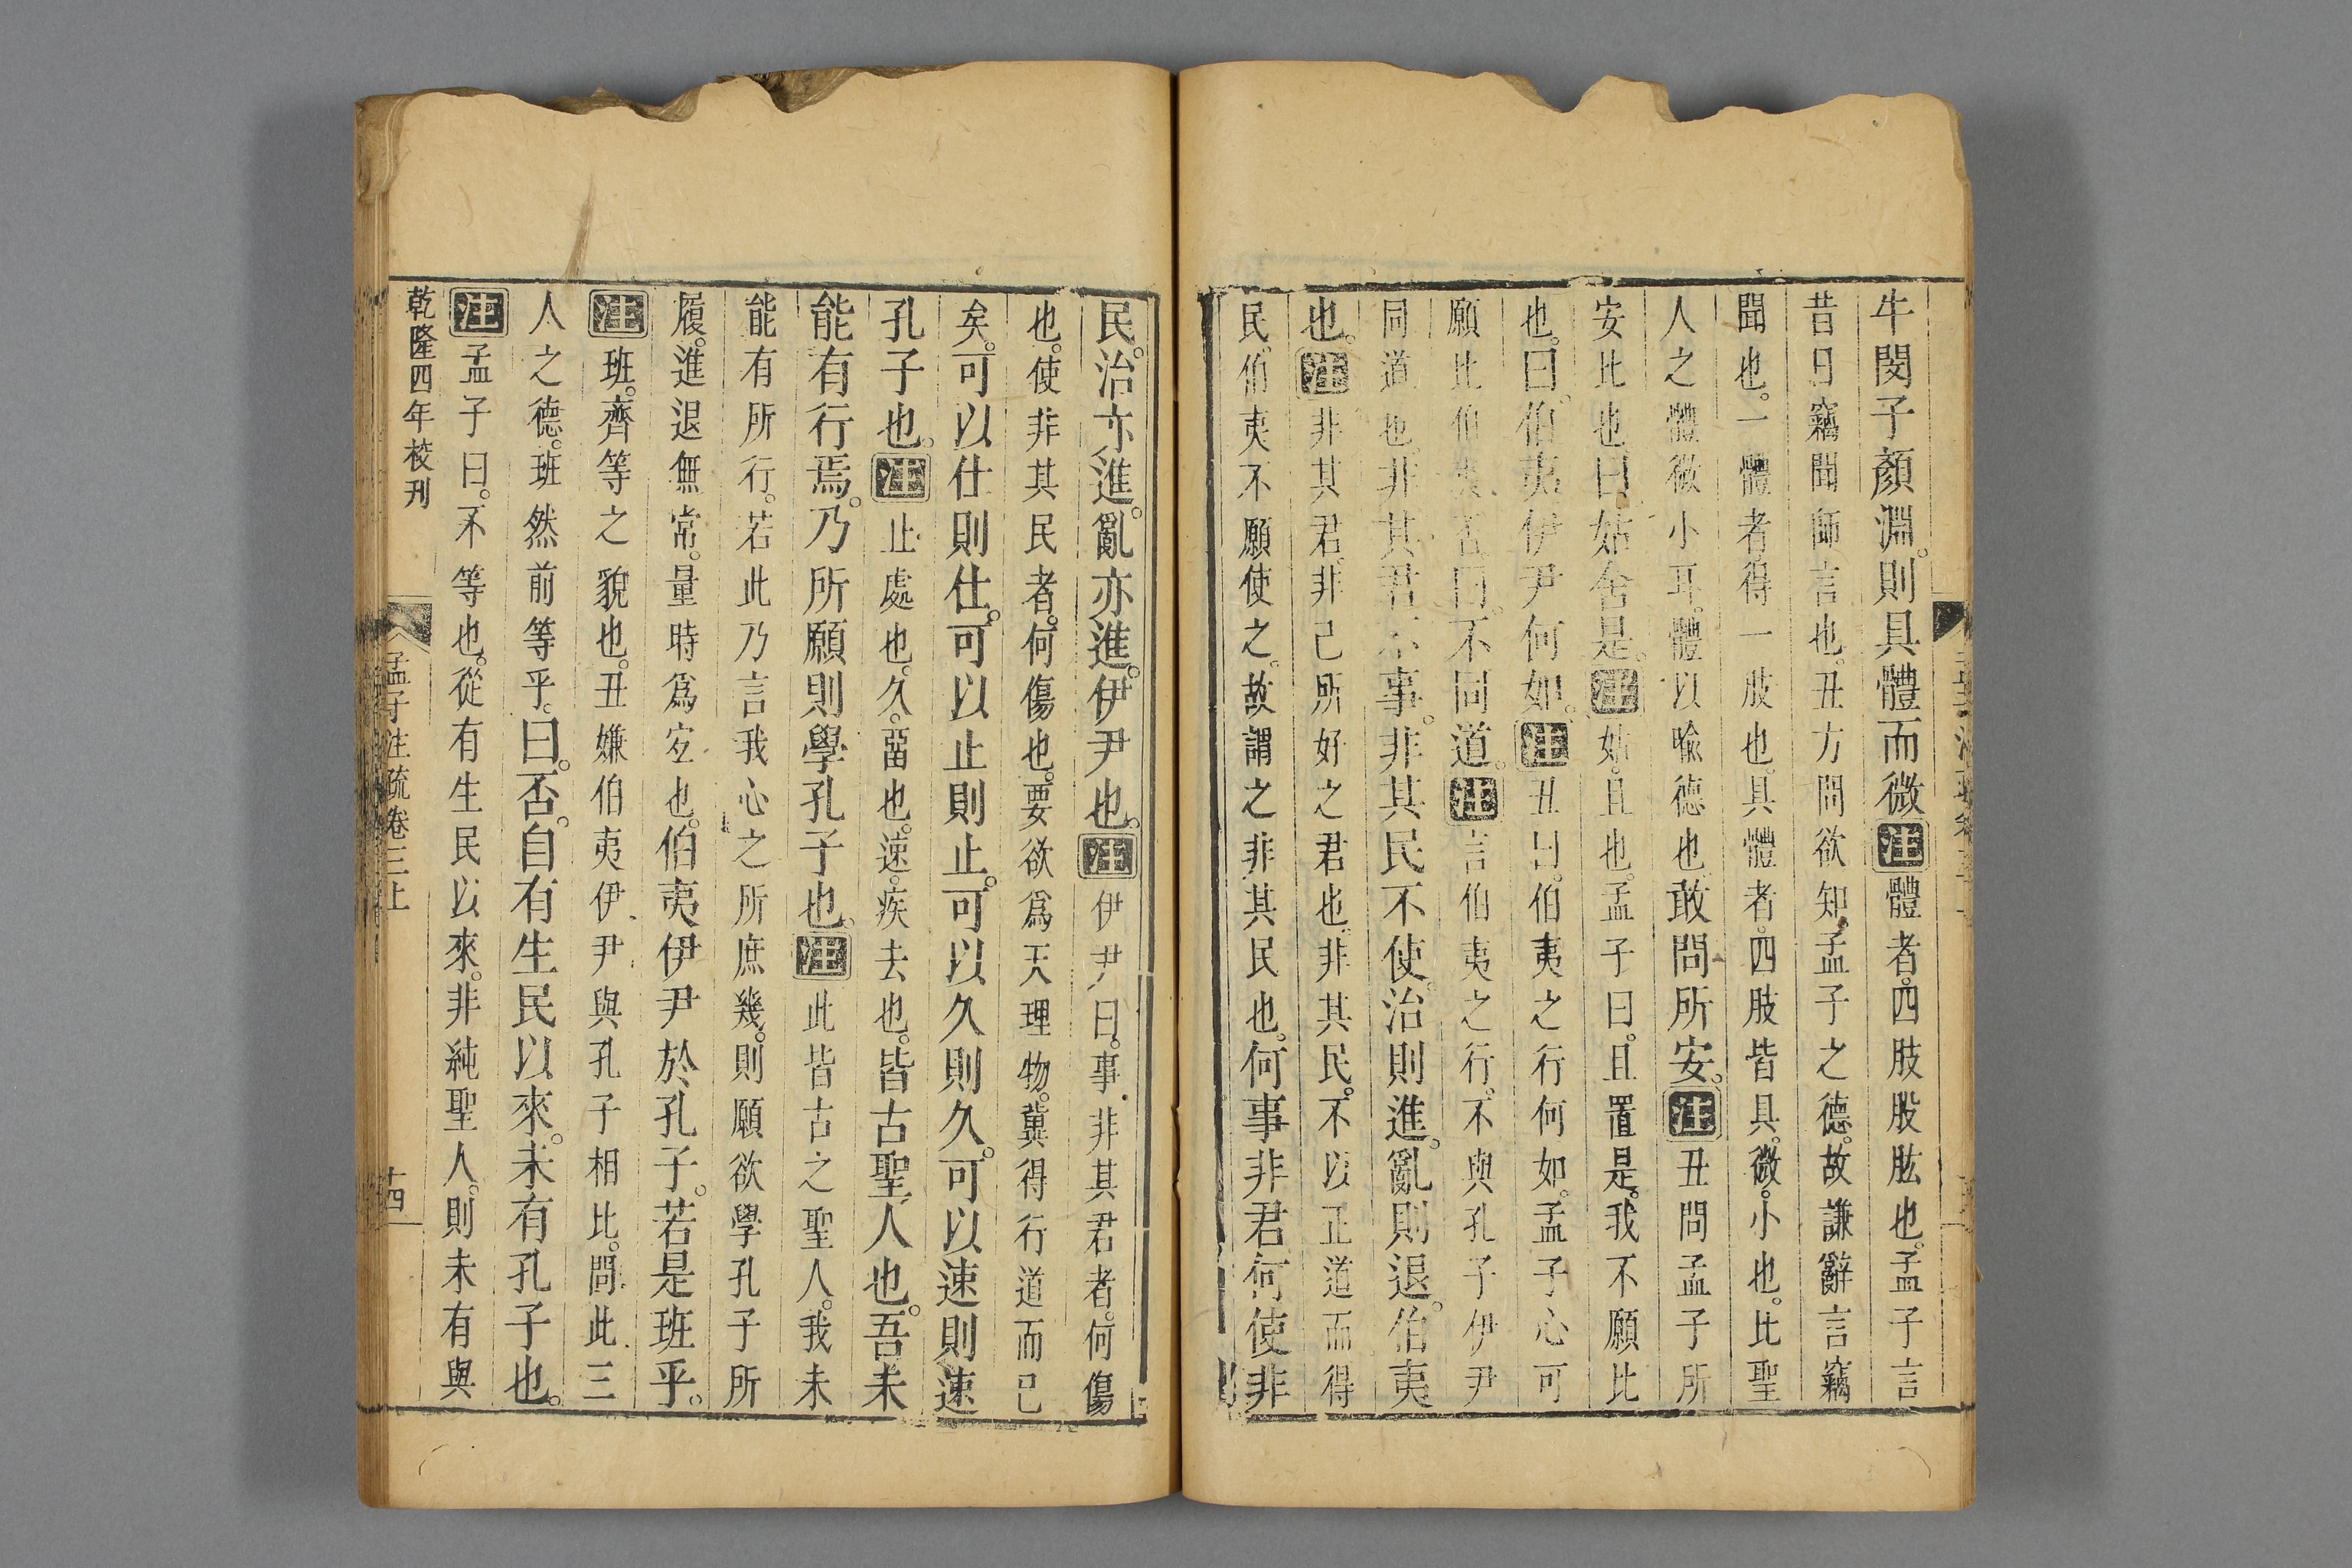 牛閔子顏淵。則具體而微。注體者。四肢股肱也。孟子言
昔日竊聞師言也。丑方問欲知孟子之德。故謙辭言竊
聞也。一體者得一肢也。具體者。四肢皆具。微。小也。比聖
人之體微小耳。體以喻德也。敢問所安。注丑問孟子所
安比也。曰。姑舍是。注姑。且也。孟子曰。且置是。我不願比
也。曰。伯夷伊尹何如。注丑曰。伯夷之行何如。孟子心可
願比伯夷否。曰。不同道。注言伯夷之行。不與孔子伊尹
同道也。非其君不事。非其民不使。治則進。亂則退。伯夷
也。注非其君。非己所好之君也。非其民。不以正道而得
民。伯夷不願使之。故謂之非其民也。何事非君。何使非
民。治亦進。亂亦進。伊尹也。注伊尹曰。事非其君者。何傷
也。使非其民者。何傷也。要欲為天理物。冀得行道而已
矣。可以仕則仕。可以止則止。可以久則久。可以速則速
孔子也。注止。處也。久。畱也。速。疾去也。皆古聖人也。吾未
能有行焉。乃所願則學孔子也。注此皆古之聖人。我未
能有所行。若此乃言我心之所庶幾。則願欲學孔子所
履。進退無常。量時為宜也。伯夷伊尹於孔子。若是班乎。
注班。齊等之貌也。丑嫌伯夷伊尹與孔子相比。問此三
人之德。班然前等乎。曰。否。自有生民以來。未有孔子也。
注孟子曰。不等也。從有生民以來。非純聖人。則未有與
乾隆四年校刊
孟子注疏卷三上
十四